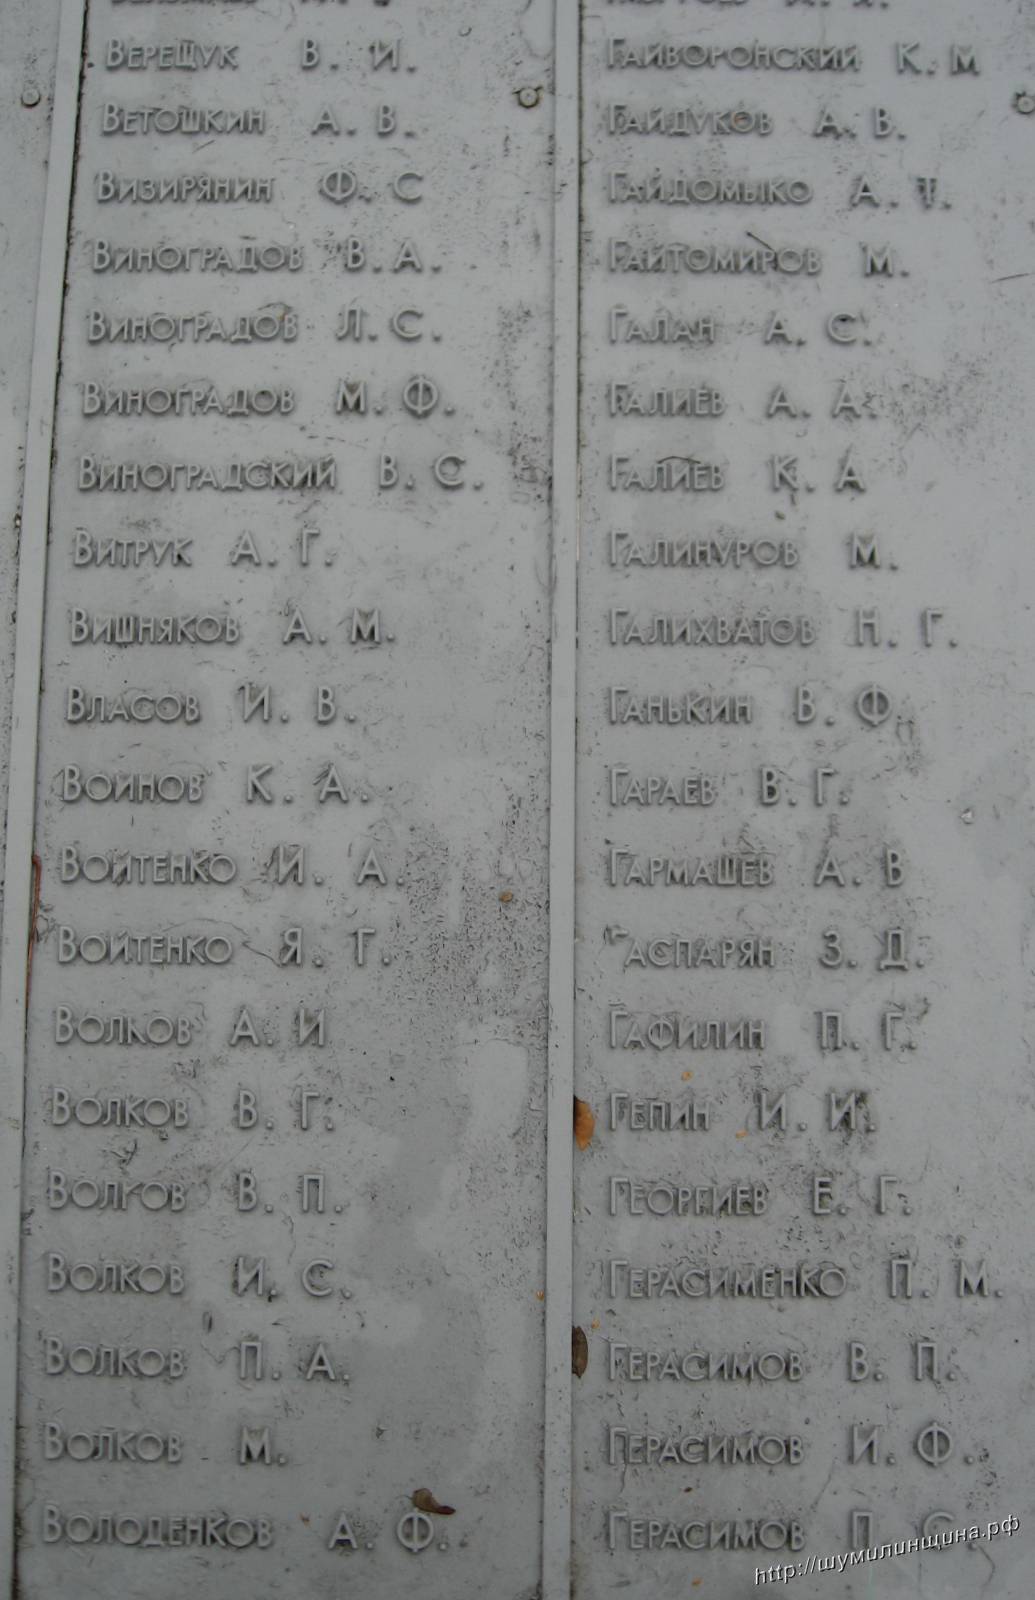 Верещук В. И.
Ветошкин А. В.
Визирянин Ф. С
Виноградов В. А.
Виноградов Л. С.
Виноградов М. Ф.
Виноградский В. С.
Витрук А. Г.
Вишняков А. М.
Власов И. В.
Воинов К. А.
Войтенко И. А.
Войтенко Я. Г.
Волков А. И
Волков В. Г.
Волков В. П.
Волков И. С.
Волков П. А.
Волков М.
Володенков А. Ф.
Гайворонский К. М
Гайдуков А. В.
Гайдомыко А. Т.
Гайтомиров М.
Галан А. С.
Галиев А. А.
Галиев К. А
Галинуров М.
Галихватов Н. Г.
Ганькин В. Ф.
Гараев В. Г.
Гармашев А. В
Гаспарян З. Д.
Гафилин П. Г.
Гепин И. И.
Георгиев Е. Г.
Герасименко П. М.
Герасимов В. П.
Герасимов И. Ф.
Герасимов П. С.
http://шумилинщина.рф